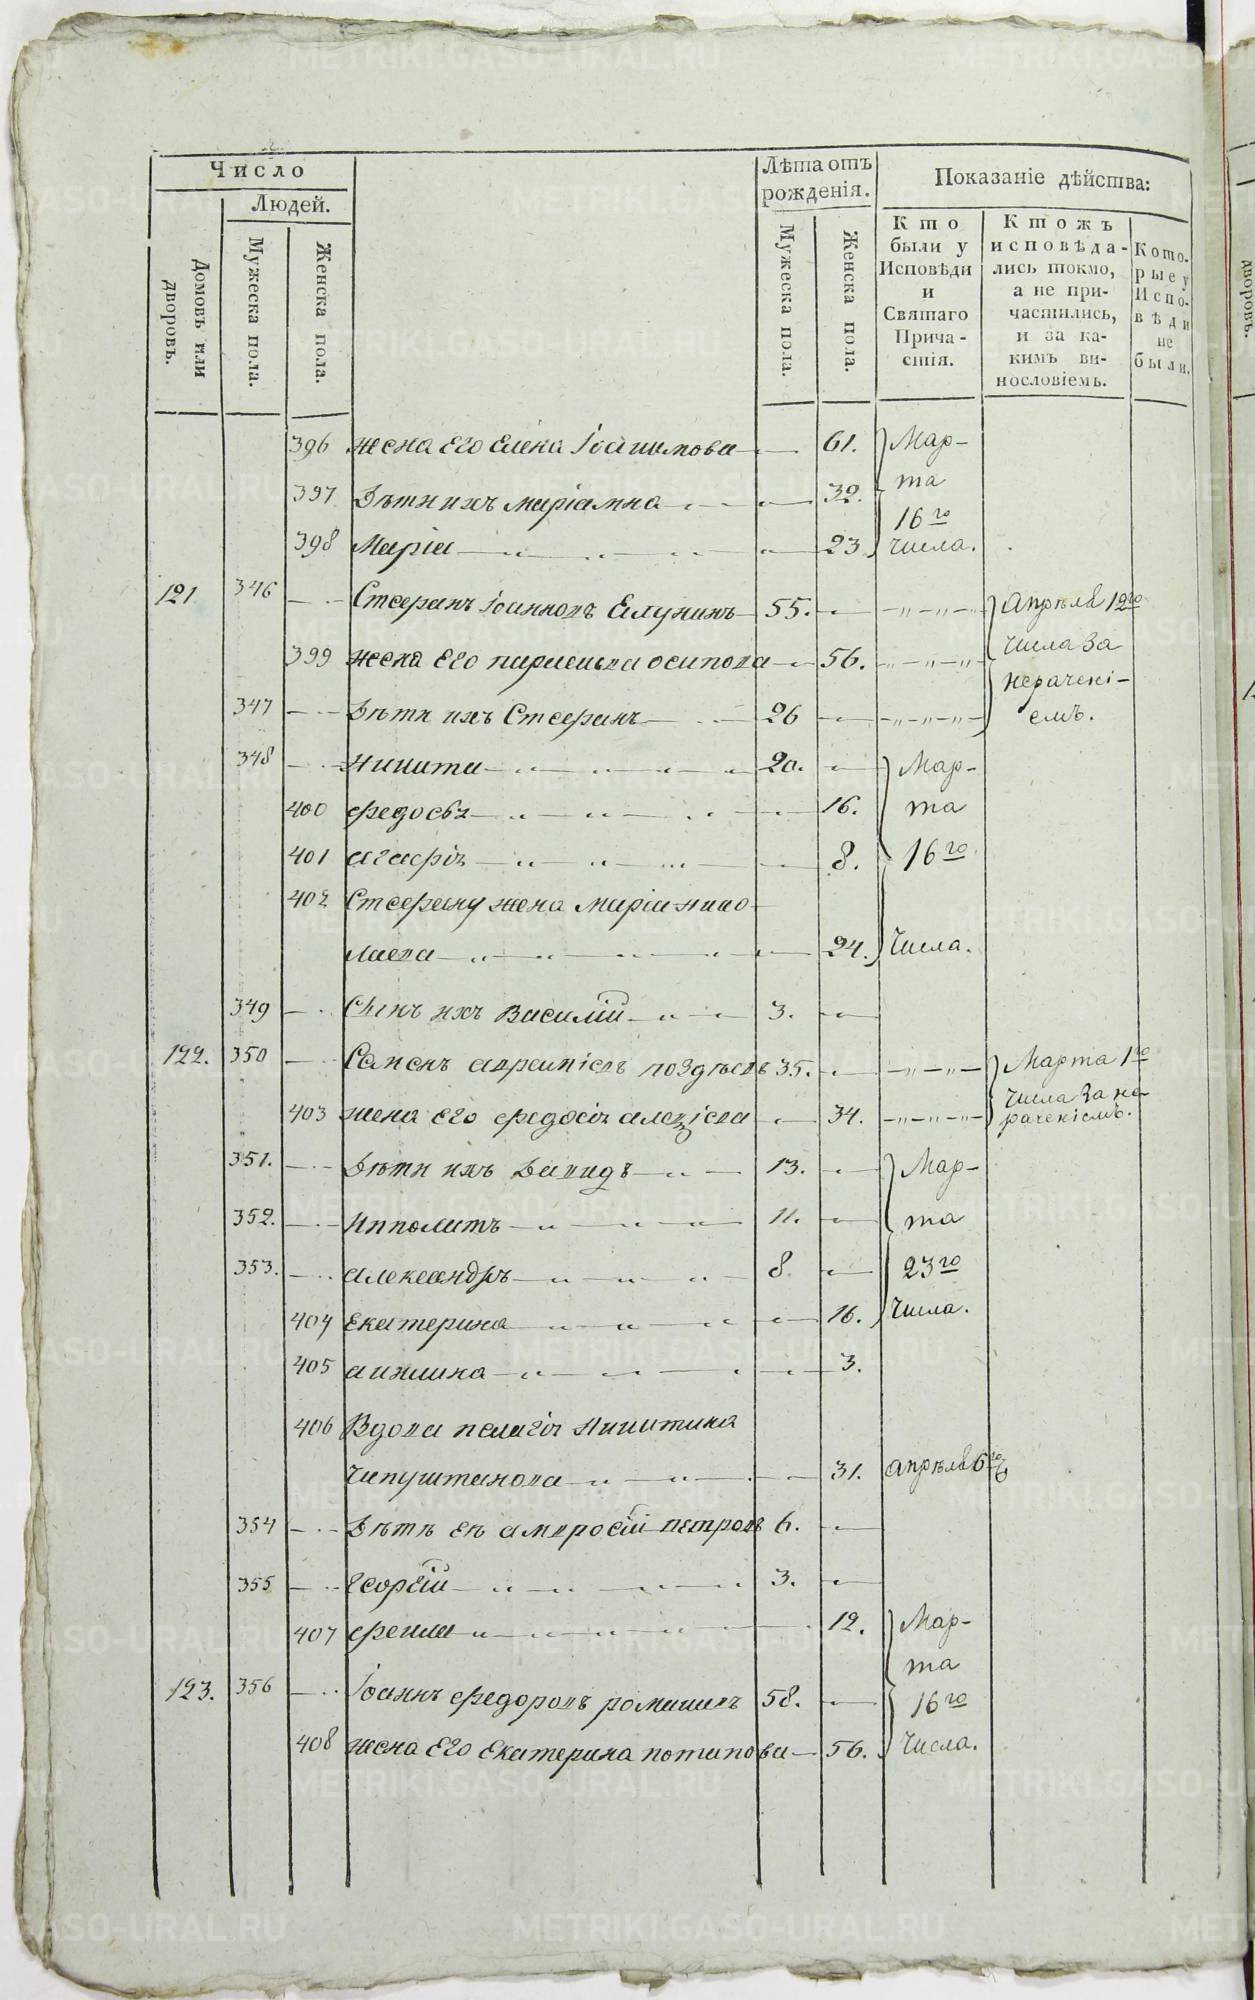 Число
Лѣта отъ рожденія.
Показаніе дѣйства:
Людей.
Домовъ или дворовъ.
Мужеска пола.
Женска пола.
Мужеска пола.
Женска пола.
Кто были у Исповѣди и Святаго Причастія.
Ктожъ исповѣдались токмо, а не причастились, и за какимъ винословіемъ.
Которые у Исповѣди не были.
396 жена его Елена Іоакимова 61. Мар-
397 Дѣти ихъ маріамна 32. та
16го
398 Марія 23 числа.
121 346 Стефанъ Іоанновъ Елунинъ 55. Апрѣля 12го
399 жена его параскева осипова 56. числа за
нерачені-
347 Дѣти ихъ Стефанъ 26 емъ.
348 никита 20. Мар-
400 федосья 16. та
401 агафія 8. 16го
402 Стефану жена марія нико
лаева 24. Числа.
349 Сынъ ихъ Василій 3.
122. 350 Самсонъ авраміевъ поздѣевъ 35. Марта 1го
403 жена его федосія алеѯіева 34. числа за не-
раченіемъ.
351. Дѣти ихъ Давидъ 13. Мар-
352. Ипполитъ 11. та
353. александръ 8. 23го
404 Екатерина 16. Числа.
405 акилина 3.
406 Вдова пелагія никитина
Чапуштанова 31. апрѣля 6го
354 Дѣти ея амвросій петровъ 6.
355 Георгій 3.
407 фекла 12. Мар-
та
123. 356 Іоаннъ федоровъ ромашевъ 58. 16го
408 жена его екатерина потапова 56. Числа.
METRIKI.GASO-URAL.RU